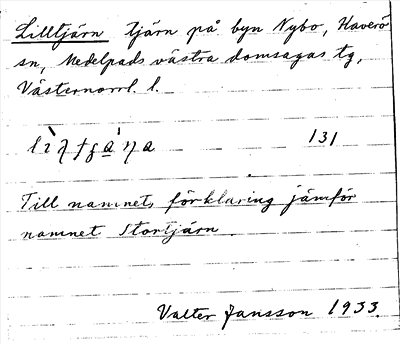 Lilltjärn tjärn på byn Nybo, Haverö
sn, Medelpads västra domsagas tg,
Västernorrl. l.
131
Till namnets förklaring jämför
namnet Stortjärn.
Valter Jansson 1933.